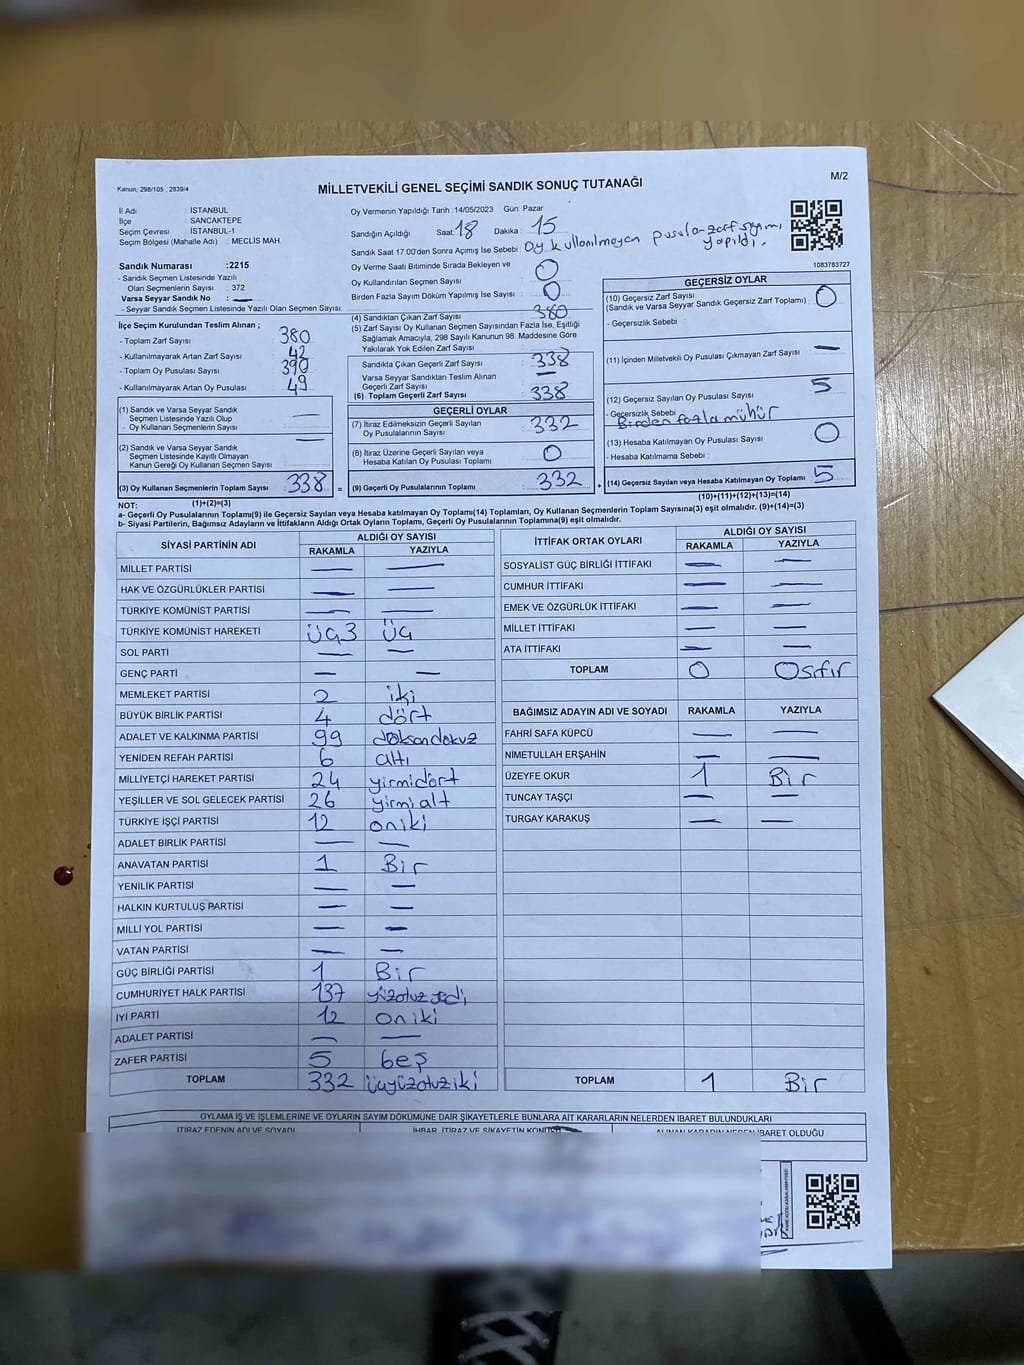 Kanun; 298/105 , 2839/4
M/2
MİLLETVEKİLİ GENEL SEÇİMİ SANDIK SONUÇ TUTANAĞI
İl Adı : İSTANBUL
İlçe : SANCAKTEPE
Seçim Çevresi : İSTANBUL-1
Seçim Bölgesi (Mahalle Adı) : MECLIS MAH.
Oy Vermenin Yapıldığı Tarih :14/05/2023 Gün: Pazar
Sandığın Açıldığı Saat: 18 Dakika : 15
Sandık Saat 17.00'den Sonra Açımış İse Sebebi : Oy kullanılmayan pusula-zarf sayımı yapıldı.
1083783727
Sandık Numarası :2215
- Sandık Seçmen Listesinde Yazılı
Olan Seçmenlerin Sayısı : 372
Varsa Seyyar Sandık No : —
- Seyyar Sandık Seçmen Listesinde Yazılı Olan Seçmen Sayısı:
Oy Verme Saati Bitiminde Sırada Bekleyen ve
Oy Kullandırılan Seçmen Sayısı : 0
Birden Fazla Sayım Döküm Yapılmış İse Sayısı : 0
İlçe Seçim Kurulundan Teslim Alınan ;
- Toplam Zarf Sayısı : 380
- Kullanılmayarak Artan Zarf Sayısı : 42
- Toplam Oy Pusulası Sayısı : 390
- Kullanılmayarak Artan Oy Pusulası : 49
(1) Sandık ve Varsa Seyyar Sandık
Seçmen Listesinde Yazılı Olup
- Oy Kullanan Seçmenlerin Sayısı : —
(2) Sandık ve Varsa Seyyar Sandık
Seçmen Listesinde Kayıtlı Olmayan
Kanun Gereği Oy Kullanan Seçmen Sayısı : —
(3) Oy Kullanan Seçmenlerin Toplam Sayısı : 338 =
(4) Sandıktan Çıkan Zarf Sayısı : 380
(5) Zarf Sayısı Oy Kullanan Seçmen Sayısından Fazla İse, Eşitliği
Sağlamak Amacıyla; 298 Sayılı Kanunun 98. Maddesine Göre
Yakılarak Yok Edilen Zarf Sayısı :
Sandıkta Çıkan Geçerli Zarf Sayısı : 338
Varsa Seyyar Sandıktan Teslim Alınan
Geçerli Zarf Sayısı : —
(6) Toplam Geçerli Zarf Sayısı : 338
GEÇERLİ OYLAR
(7) İtiraz Edilmeksizin Geçerli Sayılan
Oy Pusulalarının Sayısı : 332
(8) İtiraz Üzerine Geçerli Sayılan veya
Hesaba Katılan Oy Pusulası Toplamı : 0
(9) Geçerli Oy Pusulalarının Toplamı : 332 +
GEÇERSİZ OYLAR
(10) Geçersiz Zarf Sayısı
(Sandık ve Varsa Seyyar Sandık Geçersiz Zarf Toplamı) : 0
- Geçersizlik Sebebi :
(11) İçinden Milletvekili Oy Pusulası Çıkmayan Zarf Sayısı : —
(12) Geçersiz Sayılan Oy Pusulası Sayısı : 5
- Geçersizlik Sebebi : Birden fazla mühür
(13) Hesaba Katılmayan Oy Pusulası Sayısı : 0
- Hesaba Katılmama Sebebi :
(14) Geçersiz Sayılan veya Hesaba Katılmayan Oy Toplamı : 5
NOT: (1)+(2)=(3)
(10)+(11)+(12)+(13)=(14)
a- Geçerli Oy Pusulalarının Toplamı(9) ile Geçersiz Sayılan veya Hesaba katılmayan Oy Toplamı(14) Toplamları, Oy Kullanan Seçmenlerin Toplam Sayısına(3) eşit olmalıdır. (9)+(14)=(3)
b- Siyasi Partilerin, Bağımsız Adayların ve İttifakların Aldığı Ortak Oyların Toplamı, Geçerli Oy Pusulalarının Toplamına(9) eşit olmalıdır.
SİYASİ PARTİNİN ADI ALDIĞI OY SAYISI
RAKAMLA YAZIYLA
MİLLET PARTİSİ — —
HAK VE ÖZGÜRLÜKLER PARTİSİ — —
TÜRKİYE KOMÜNİST PARTİSİ — —
TÜRKİYE KOMÜNİST HAREKETİ üç3 üç
SOL PARTİ — —
GENÇ PARTİ — —
MEMLEKET PARTİSİ 2 iki
BÜYÜK BİRLİK PARTİSİ 4 dört
ADALET VE KALKINMA PARTİSİ 99 doksandokuz
YENİDEN REFAH PARTİSİ 6 altı
MİLLİYETÇİ HAREKET PARTİSİ 24 yirmidört
YEŞİLLER VE SOL GELECEK PARTİSİ 26 yirmialt
TÜRKİYE İŞÇİ PARTİSİ 12 oniki
ADALET BİRLİK PARTİSİ — —
ANAVATAN PARTİSİ 1 Bir
YENİLİK PARTİSİ — —
HALKIN KURTULUŞ PARTİSİ — —
MİLLİ YOL PARTİSİ — —
VATAN PARTİSİ — —
GÜÇ BİRLİĞİ PARTİSİ 1 Bir
CUMHURİYET HALK PARTİSİ 137 yüzotuzyedi
İYİ PARTİ 12 oniki
ADALET PARTİSİ — —
ZAFER PARTİSİ 5 beş
TOPLAM 332 üçyüzotuziki
İTTİFAK ORTAK OYLARI ALDIĞI OY SAYISI
RAKAMLA YAZIYLA
SOSYALİST GÜÇ BİRLİĞİ İTTİFAKI — —
CUMHUR İTTİFAKI — —
EMEK VE ÖZGÜRLÜK İTTİFAKI — —
MİLLET İTTİFAKI — —
ATA İTTİFAKI — —
TOPLAM 0 0sıfır
BAĞIMSIZ ADAYIN ADI VE SOYADI RAKAMLA YAZIYLA
FAHRİ SAFA KÜPCÜ — —
NİMETULLAH ERŞAHİN — —
ÜZEYFE OKUR 1 Bir
TUNCAY TAŞÇI — —
TURGAY KARAKUŞ — —
TOPLAM 1 Bir
OYLAMA İŞ VE İŞLEMLERİNE VE OYLARIN SAYIM DÖKÜMÜNE DAİR ŞİKAYETLERLE BUNLARA AİT KARARLARIN NELERDEN İBARET BULUNDUKLARI
İTİRAZ EDENİN ADI VE SOYADI İHBAR, İTİRAZ VE ŞİKAYETİN KONUSU ALINAN KARARIN NEDEN İBARET OLDUĞU